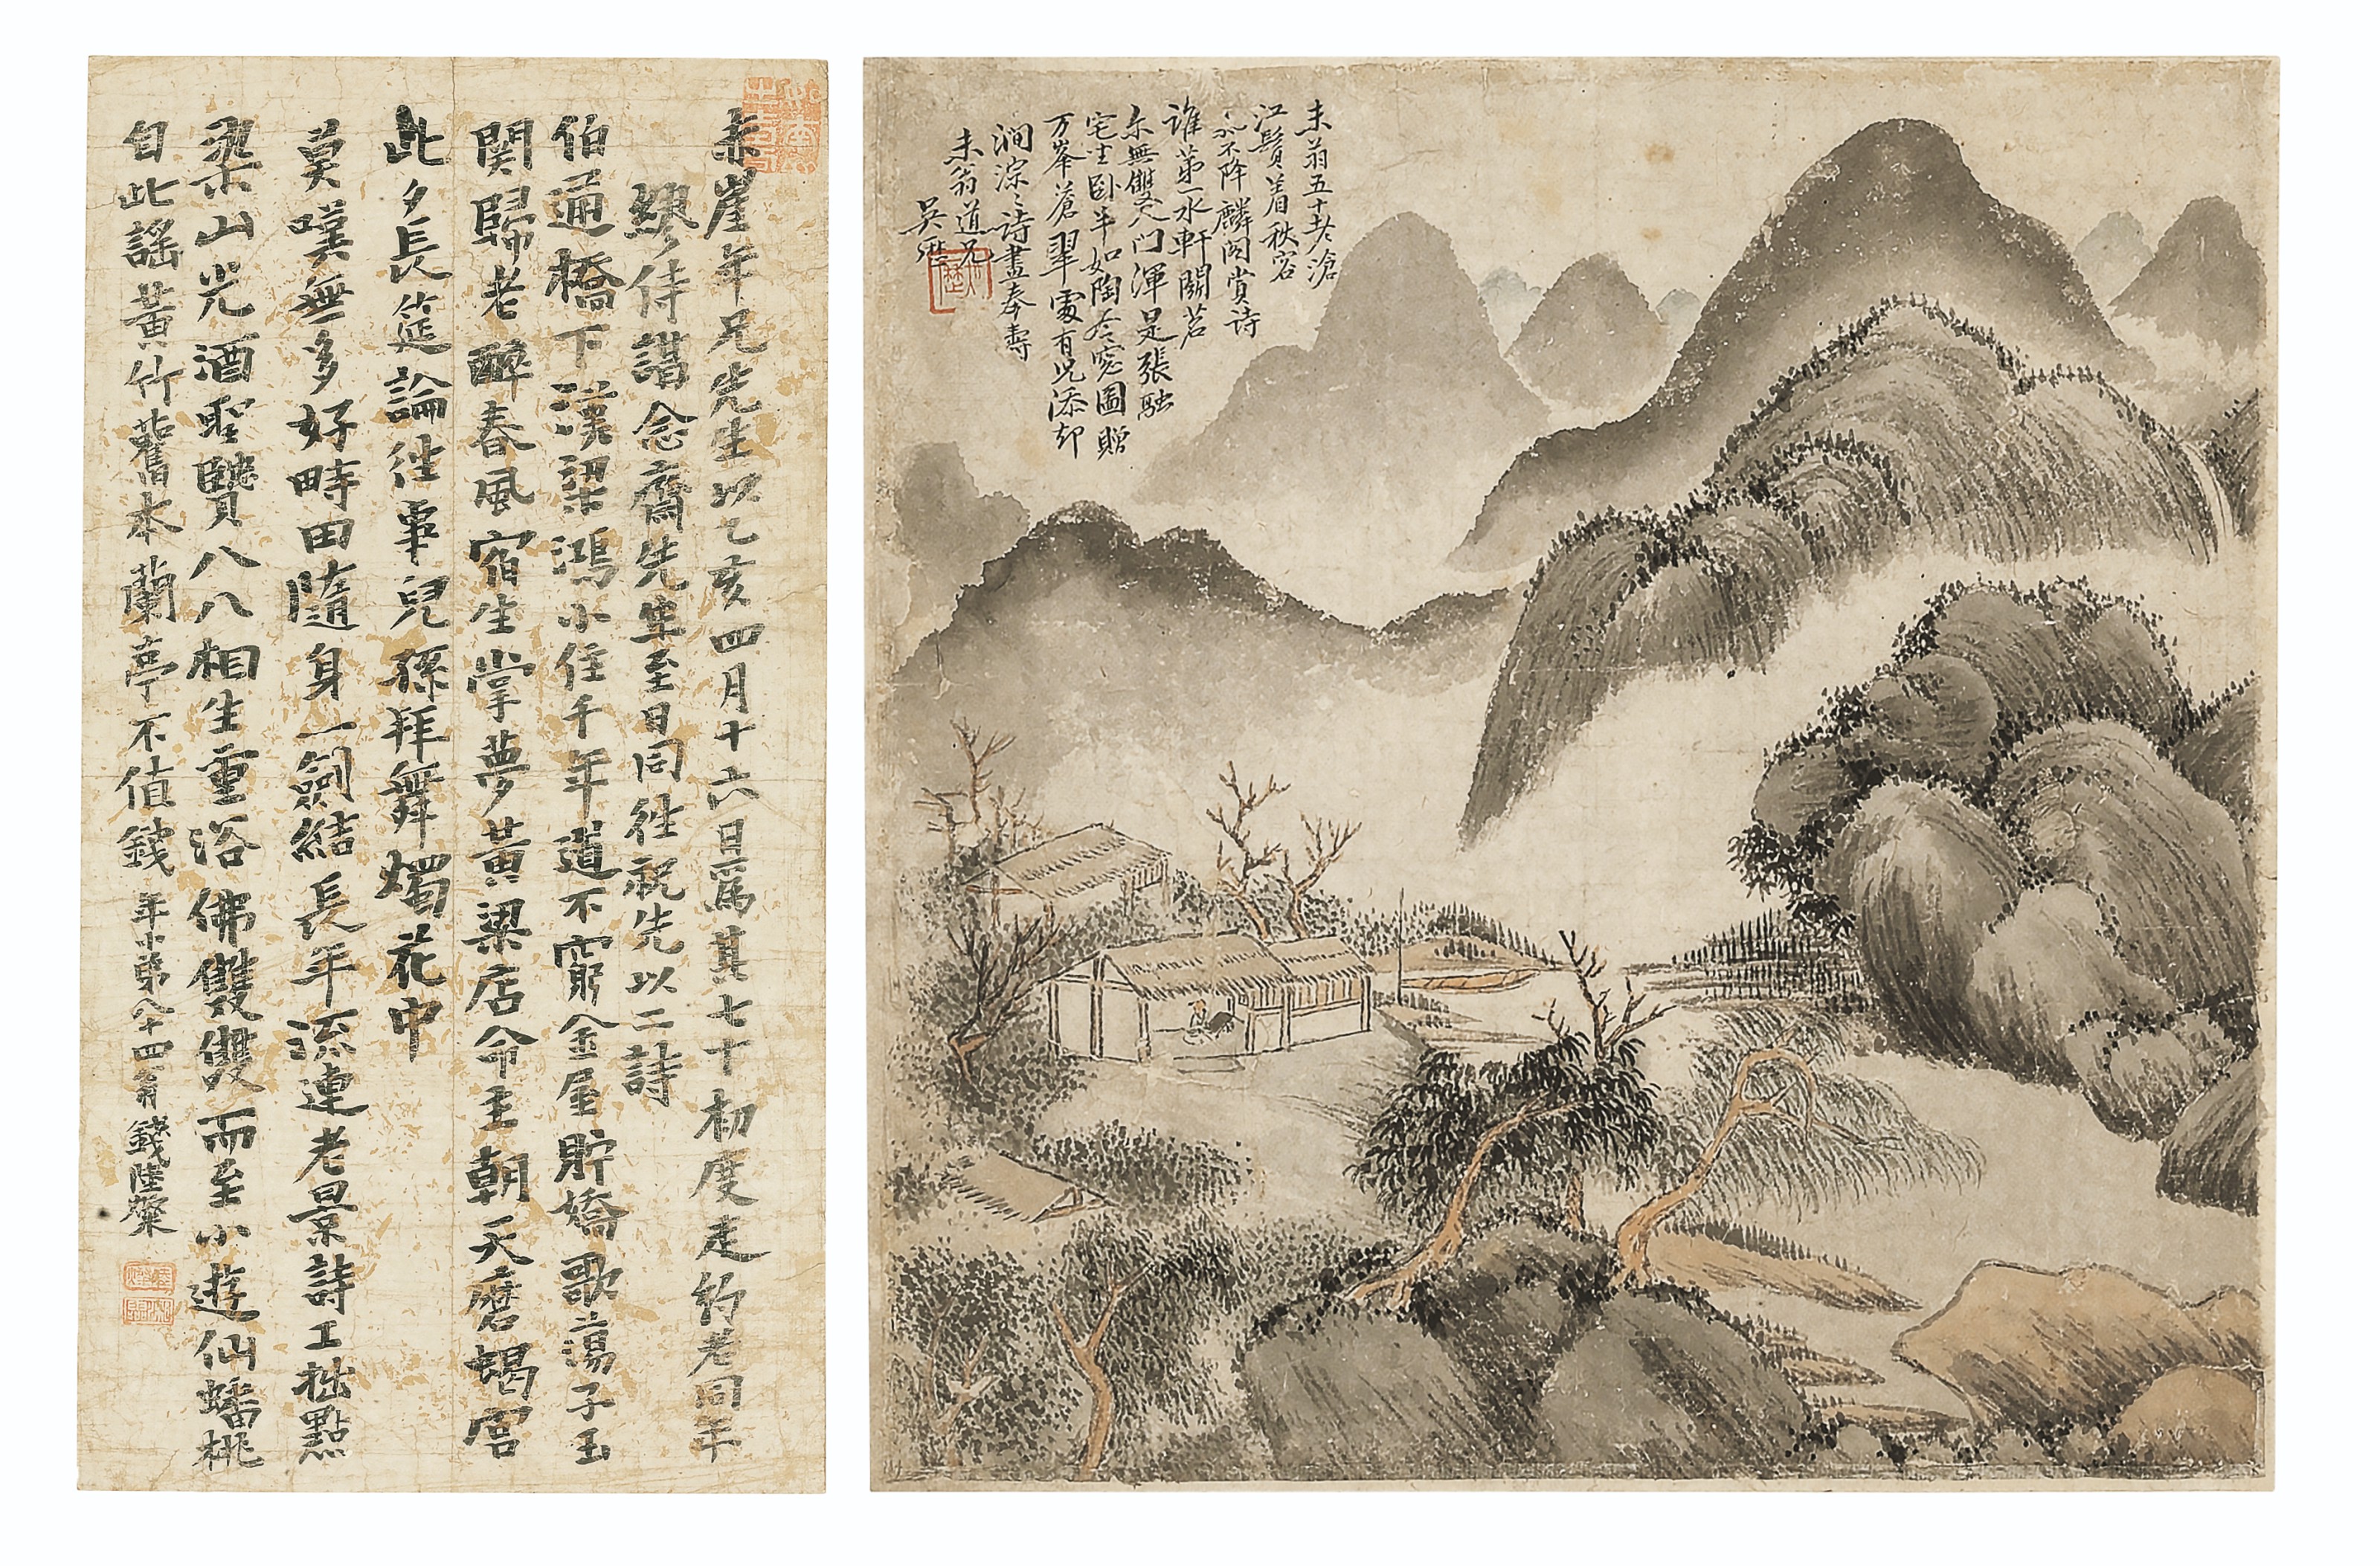 赤崖年兄先生以乙亥四月十六日為其七十初度走約老同年
繆侍講念齋先年至日同徃祝先以二詩
伯通橋下漢梁鴻小住千年道不窮金屋貯嬌歌蕩子玉
関歸老醉春風宿生掌夢黃粱店命主朝天磨蝎宮
此夕長筵論徃事兒孫拜舞燭花中
莫嘆無多好時田隨身一劍結長年流連老景詩工拙點
染山光酒聖賢八八相生重浴佛雙雙而至小遊仙蟠桃
自此謠黃竹舊本蘭亭不值錢 年小弟八十四翁錢陸燦
未翁五十老滄
江鬢着秋容
心不降麟閣賞詩
誰第一水軒鬪茗
尓無雙入門渾是張融
宅生卧半如陶令窓圖贈
万峯蒼翠處有此添却
澗淙〻詩畫奉壽
未翁道兄
吳歷